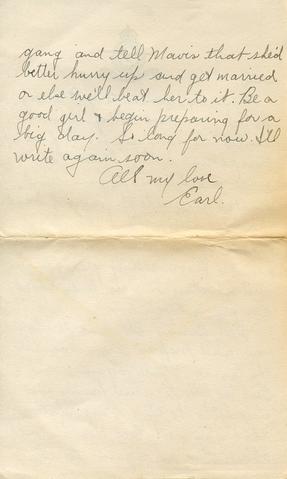 gang and tell Mavis that she'd
better hurry up and get married
or else we'll beat her to it. Be a
good girl & begin preparing for a
big day. So long for now. I'll
write again soon.
All my love
Earl.